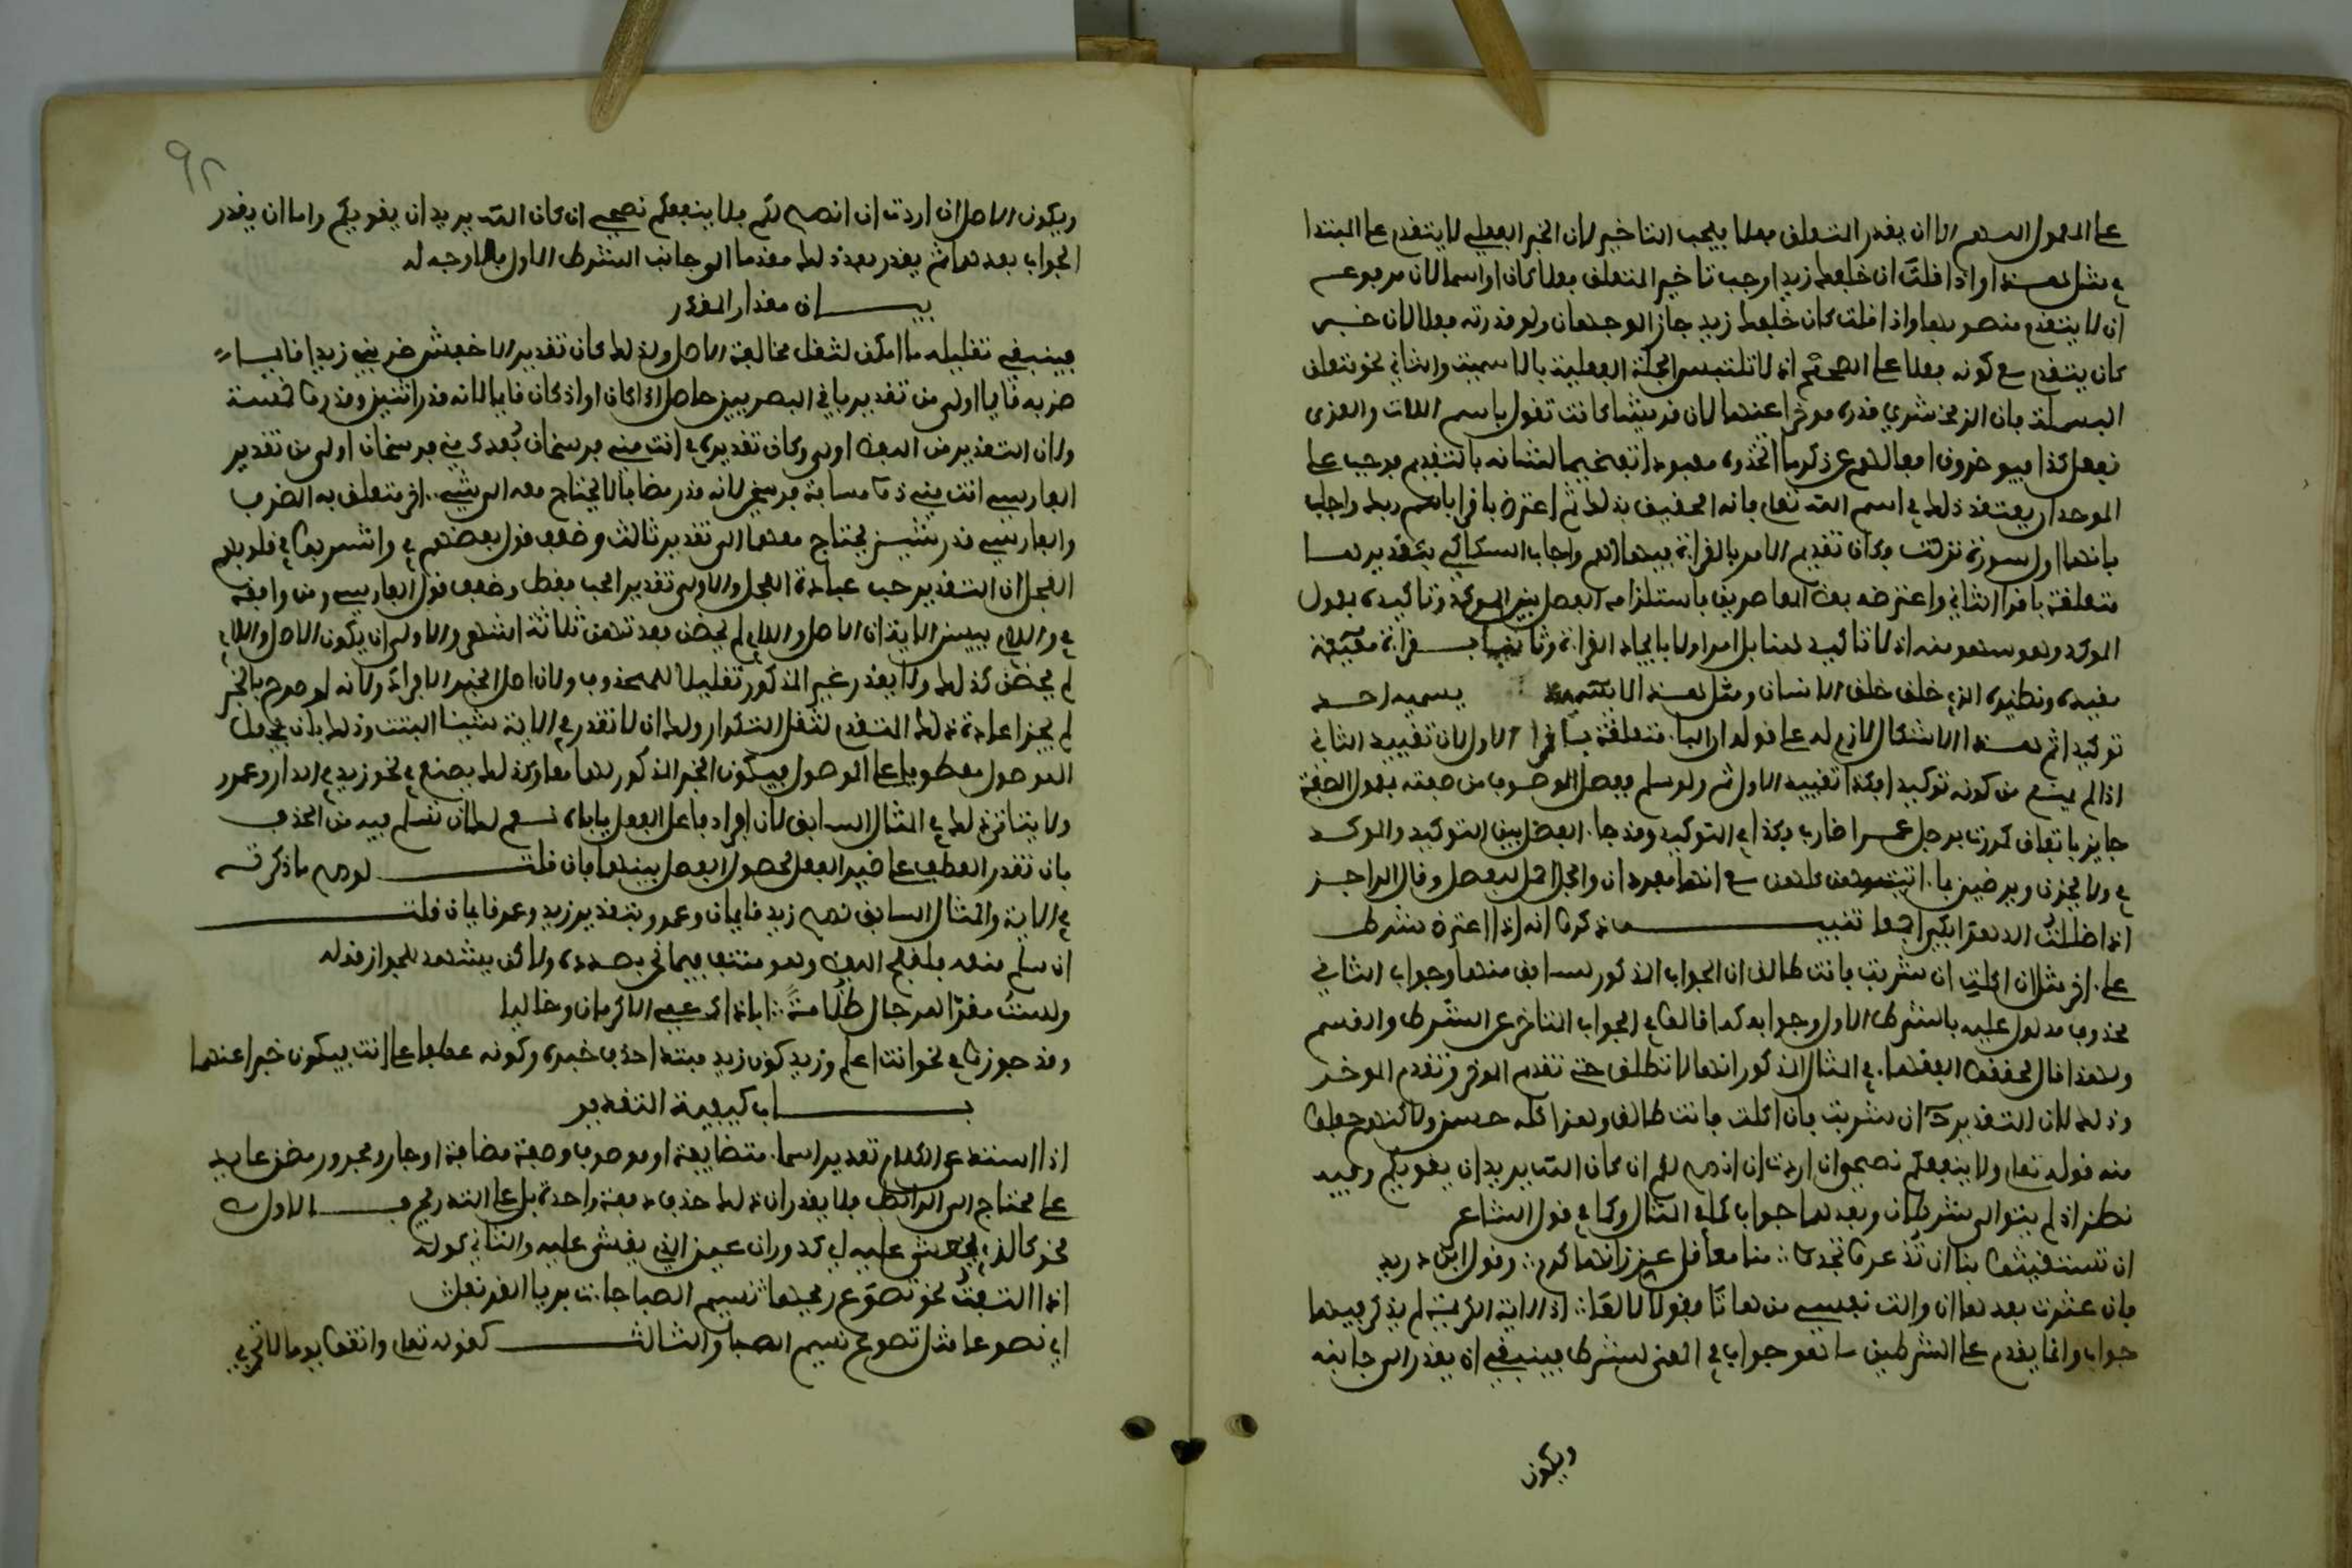 على المعمول اللهم الا ان يقدر المتعلق فعلا فيجب التاخير لان الخبر الفعلي لا يتقدم على المبتدا
في مثل هذا واذا قلت ان خلفك زيدا وجب تاخير المتعلق فعلا كان او اسما لان مرفوع
ان لا يتقدم منصوبها واذا قلت كان خلفك زيد جاز الوجهان ولو قدرته فعلا لان خبر
كان يتقدم مع كونه فعلا على الصحيح اذ لا تلتبس الجملة الفعلية بالاسمية والثاني نحو متعلق
البسملة فان الزمخشري قدره موخرا عنها لان قريشا كانت تقول باسم اللات والعزى
نفعل كذا فيوخرون افعالهم عن ذكر ما اتخذوه معبودا تفخيما لشانه بالتقديم فوجب على
الموحد ان يعتقد ذلك في اسم الله تعالى فانه الحقيق بذلك ثم اعترض باقرا باسم ربك واجاب
بانها اول سورة نزلت وكان تقديم الامر بالقراءة فيها اهم واجاب السكاكي بتقديرها
متعلقة باقرا الثاني واعترضه بعض العاصريين باستلزامه الفصل بين الموكد وتاكيده بمعمول
الموكد وهو سهو منه اذ لا تاكيد هنا بل امر اولا بايجاد القراءة وثانيا بقراءة مقيدة
مقيده ونظيره الذي خلق خلق الانسان ومثل هذا لا يسميه احد
توكيدا ثم هذا الاشكال لازم له على قوله ان الباء متعلقة باقرا الاول لان تقييد الثاني
اذا لم يمنع من كونه توكيدا فكذا تقييد الاول ثم ولو سلم ففصل الموصوف من صفته بمعمول الصفة
جايز باتفاق كمررت برجل عمرا ضارب فكذا في التوكيد وقد جاء الفصل بين التوكيد والموكد
في ولا يحزن ويرضين بما اتيتهن كلهن مع انهما مفردان والجمل احمل للفصل وقال الراجز
اذا ظللت الدهر ابكي اجمعا تنبيـه ذكروا انه اذا اعترض شرط
على اخر مثل ان اكلت ان شربت فانت طالق ان الجواب المذكور للسابق منهما وجواب الثاني
محذوف مدلول عليه بالشرط الاول وجوابه كما قالوا في الجواب المتاخر عن الشرط والقسم
ولهذا قال محققو الفقهاء في المثال المذكور انها لا تطلق حتى تقدم الموخر وتؤخر الموخر
وذلك لان التقدير ح ان شربت فان اكلت فانت طالق وهذا كله حسن ولاكنهم جعلوا
منه قوله تعالى ولا ينفعكم نصحي ان اردت ان انصح لكم ان كان الله يريد ان يغويكم وفيه
نظر اذ لم يتوال شرطان وبعدهما جواب كما في المثال وكما في قول الشاعر
ان تستغيثوا بنا ان تذعروا تجدوا ∴ منا معاقل عز زانها كرم ∴ وقول ابن دريد
فان عثرت بعدها ان والت نفسي من هاتا فقولا لا لعا ∴ اذ الاية الكريمة لم يذكر فيها
جواب وانما يقدم على الشرطين ما هو جواب في المعنى لشرط فينبغي ان يقدر الى جانبه
ويكون
٩٢
ويكون الاصل ان اردت ان انصح لكم فلا ينفعكم نصحي ان كان الله يريد ان يغويكم واما ان يقدر
الجواب بعدهما ثم يقدر بعد ذلك مقدما الى جانب الشرط الاول فلا وجه له
بيـــان مقدار المقدر
فينبغي تقليله ما امكن لتقل مخالفة الاصل ولذلك كان تقدير الاخفش ضربي زيدا قايما
ضربه قايما اولى من تقدير باقي البصريين حاصل اذا كان او اذ كان قايما لانه قدر اثنين وقدروا خمسة
ولان التقدير من اللفظ اولى وكان تقديره في انت مني فرسخان بعدك مني فرسخان اولى من تقدير
الفارسي انت مني ذو مسافة فرسخين لانه قدر مضافا لا يحتاج معه الى شيء اخر متعلق به الظرف
والفارسي قدر شيئين يحتاج معهما الى تقدير ثالث وضعف قول بعضهم في واشربوا في قلوبهم
العجل ان التقدير حب عبادة العجل والاولى تقدير الحب فقط وضعف قول الفارسي ومن وافقه
في واللاي ييسن الاية ان الاصل واللاي لم يحضن فعدتهن ثلاثة اشهر والاولى ان يكون الاصل واللاي
لم يحضن كذلك ولا يقدر غير المذكور تقليلا للمحذوف ولان اصل الخبر الافراد ولانه لو صرح بالخبر
لم يجز اعادة ذلك المتقدم لثقل التكرار ولك ان لا تقدر في الاية شيئا البتة وذلك بان تجعل
الموصول معطوفا على الموصول فيكون الخبر المذكور لهما معا وكذلك يصنع في نحو زيد في الدار وعمرو
ولا يتاتى ذلك في المثال السابق لان افراد فاعل الفعل ياباه نعم لك ان تسلم فيه من الحذف
بان تقدر العطف على ضمير الفعل لحصول الفصل بينهما فان قلت لو صح ما ذكرته
في الاية والمثال السابق لصح زيد قايمان وعمرو بتقدير زيد وعمرو قايمان قلت
ان سلم منعه فلقبح اللفظ وهو منتف فيما نحن بصدده ولاكن يشهد للجواز قوله
ولست مقرا للرجال ظلامة ∴ ابا ذاك عمي الاكرمان وخاليا
وقد جوزوا في نحو انت اعلم وزيد كون زيد مبتدا حذف خبره وكونه عطفا على انت فيكون خبرا عنهما
بـــاب كيفية التقدير
اذا استدعى الكلام تقدير اسماء متضايفة او موصوف وصفة مضافة او جار ومجرور مضمر عايد
على محتاج الى الرابط فلا يقدر ان ذلك حذف دفعة واحدة بل على التدريج فـــالاول
نحو كالذي يغشى عليه اي كدوران عين الذي يغشى عليه والثاني كقوله
اذا التفتت نحوي تضوع ريحها ∴ نسيم الصبا جاءت بريا القرنفل
اي تضوعا مثل تضوع نسيم الصبا والثالـــث كقوله تعالى واتقوا يوما لا تجزي